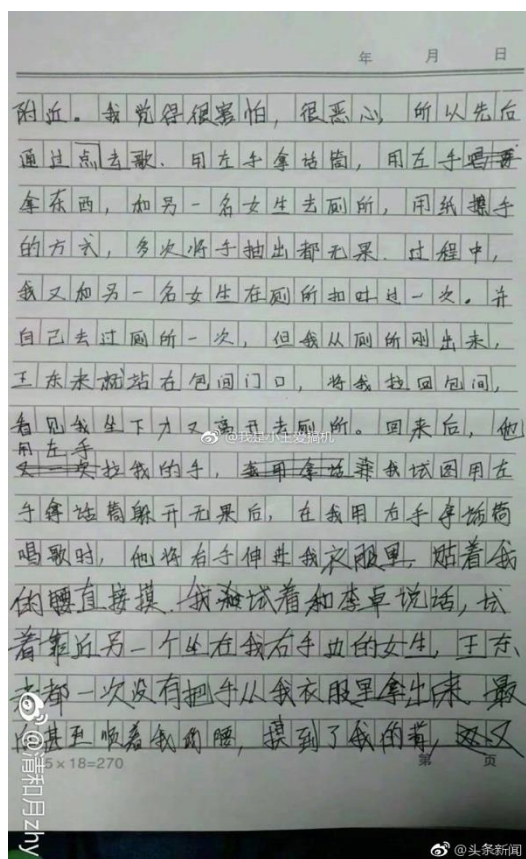 年 月 日
附近。我觉得很害怕，很恶心，所以先后
通过点去歌．用左手拿话筒，用左手
拿东西，和另一名女生去厕所，用纸擦手
的方式，多次将手抽出都无果．过程中，
我又和另一名女生在厕所扣吐过一次。并
自己去过厕所一次，但我从厕所刚出来，
王东来就站在包间门口，将我拉回包间，
看见我坐下才又离开去厕所。回来后，他
用左手
拉我的手，我试图用左
手拿话筒躲开无果后，在我用右手拿话筒
唱歌时，他将右手伸进我衣服里，贴着我
的腰直接摸．我试着和李卓说话，试
着靠近另一个坐在我右手边的女生，王东
来都一次没有把手从我衣服里拿出来．最
后甚至顺着我的腰，摸到了我的背，
5×18=270
第 页
@我是小王爱搞机
@清和月zhy
@头条新闻